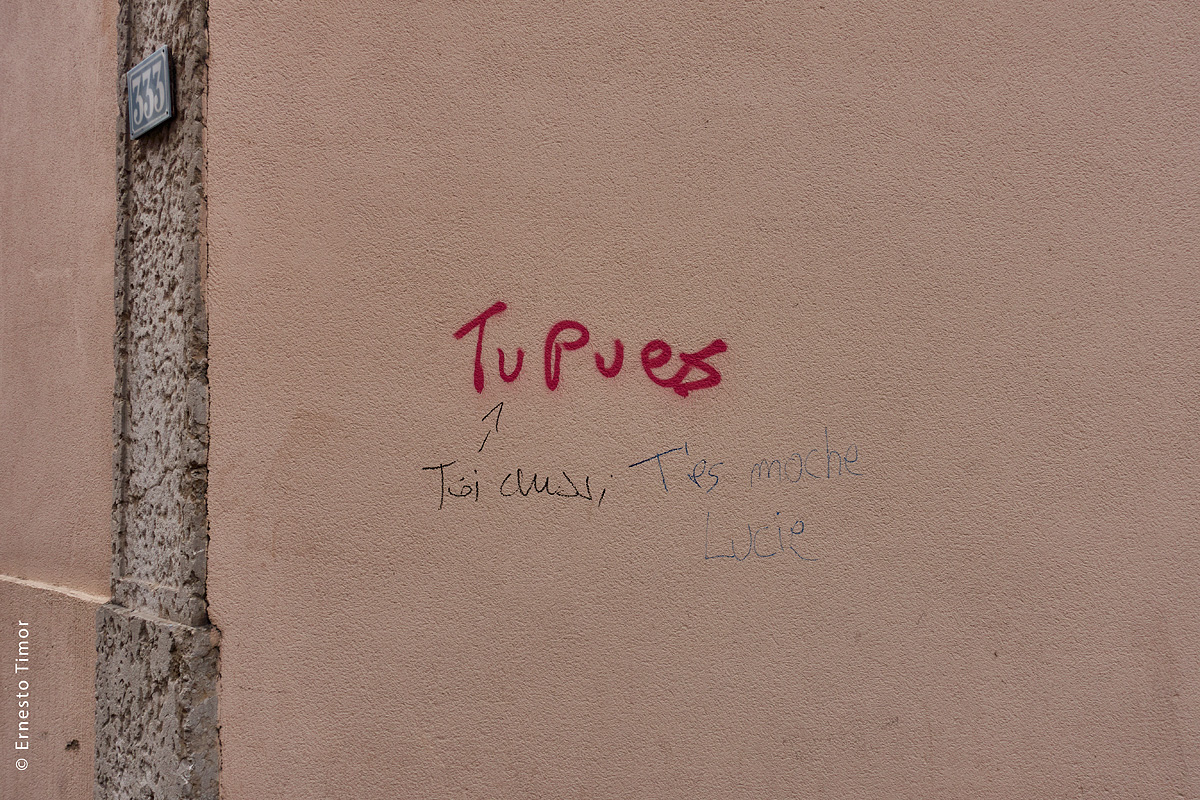 333
Tu Pues
Toi T'es moche
Lucie
© Ernesto Timor